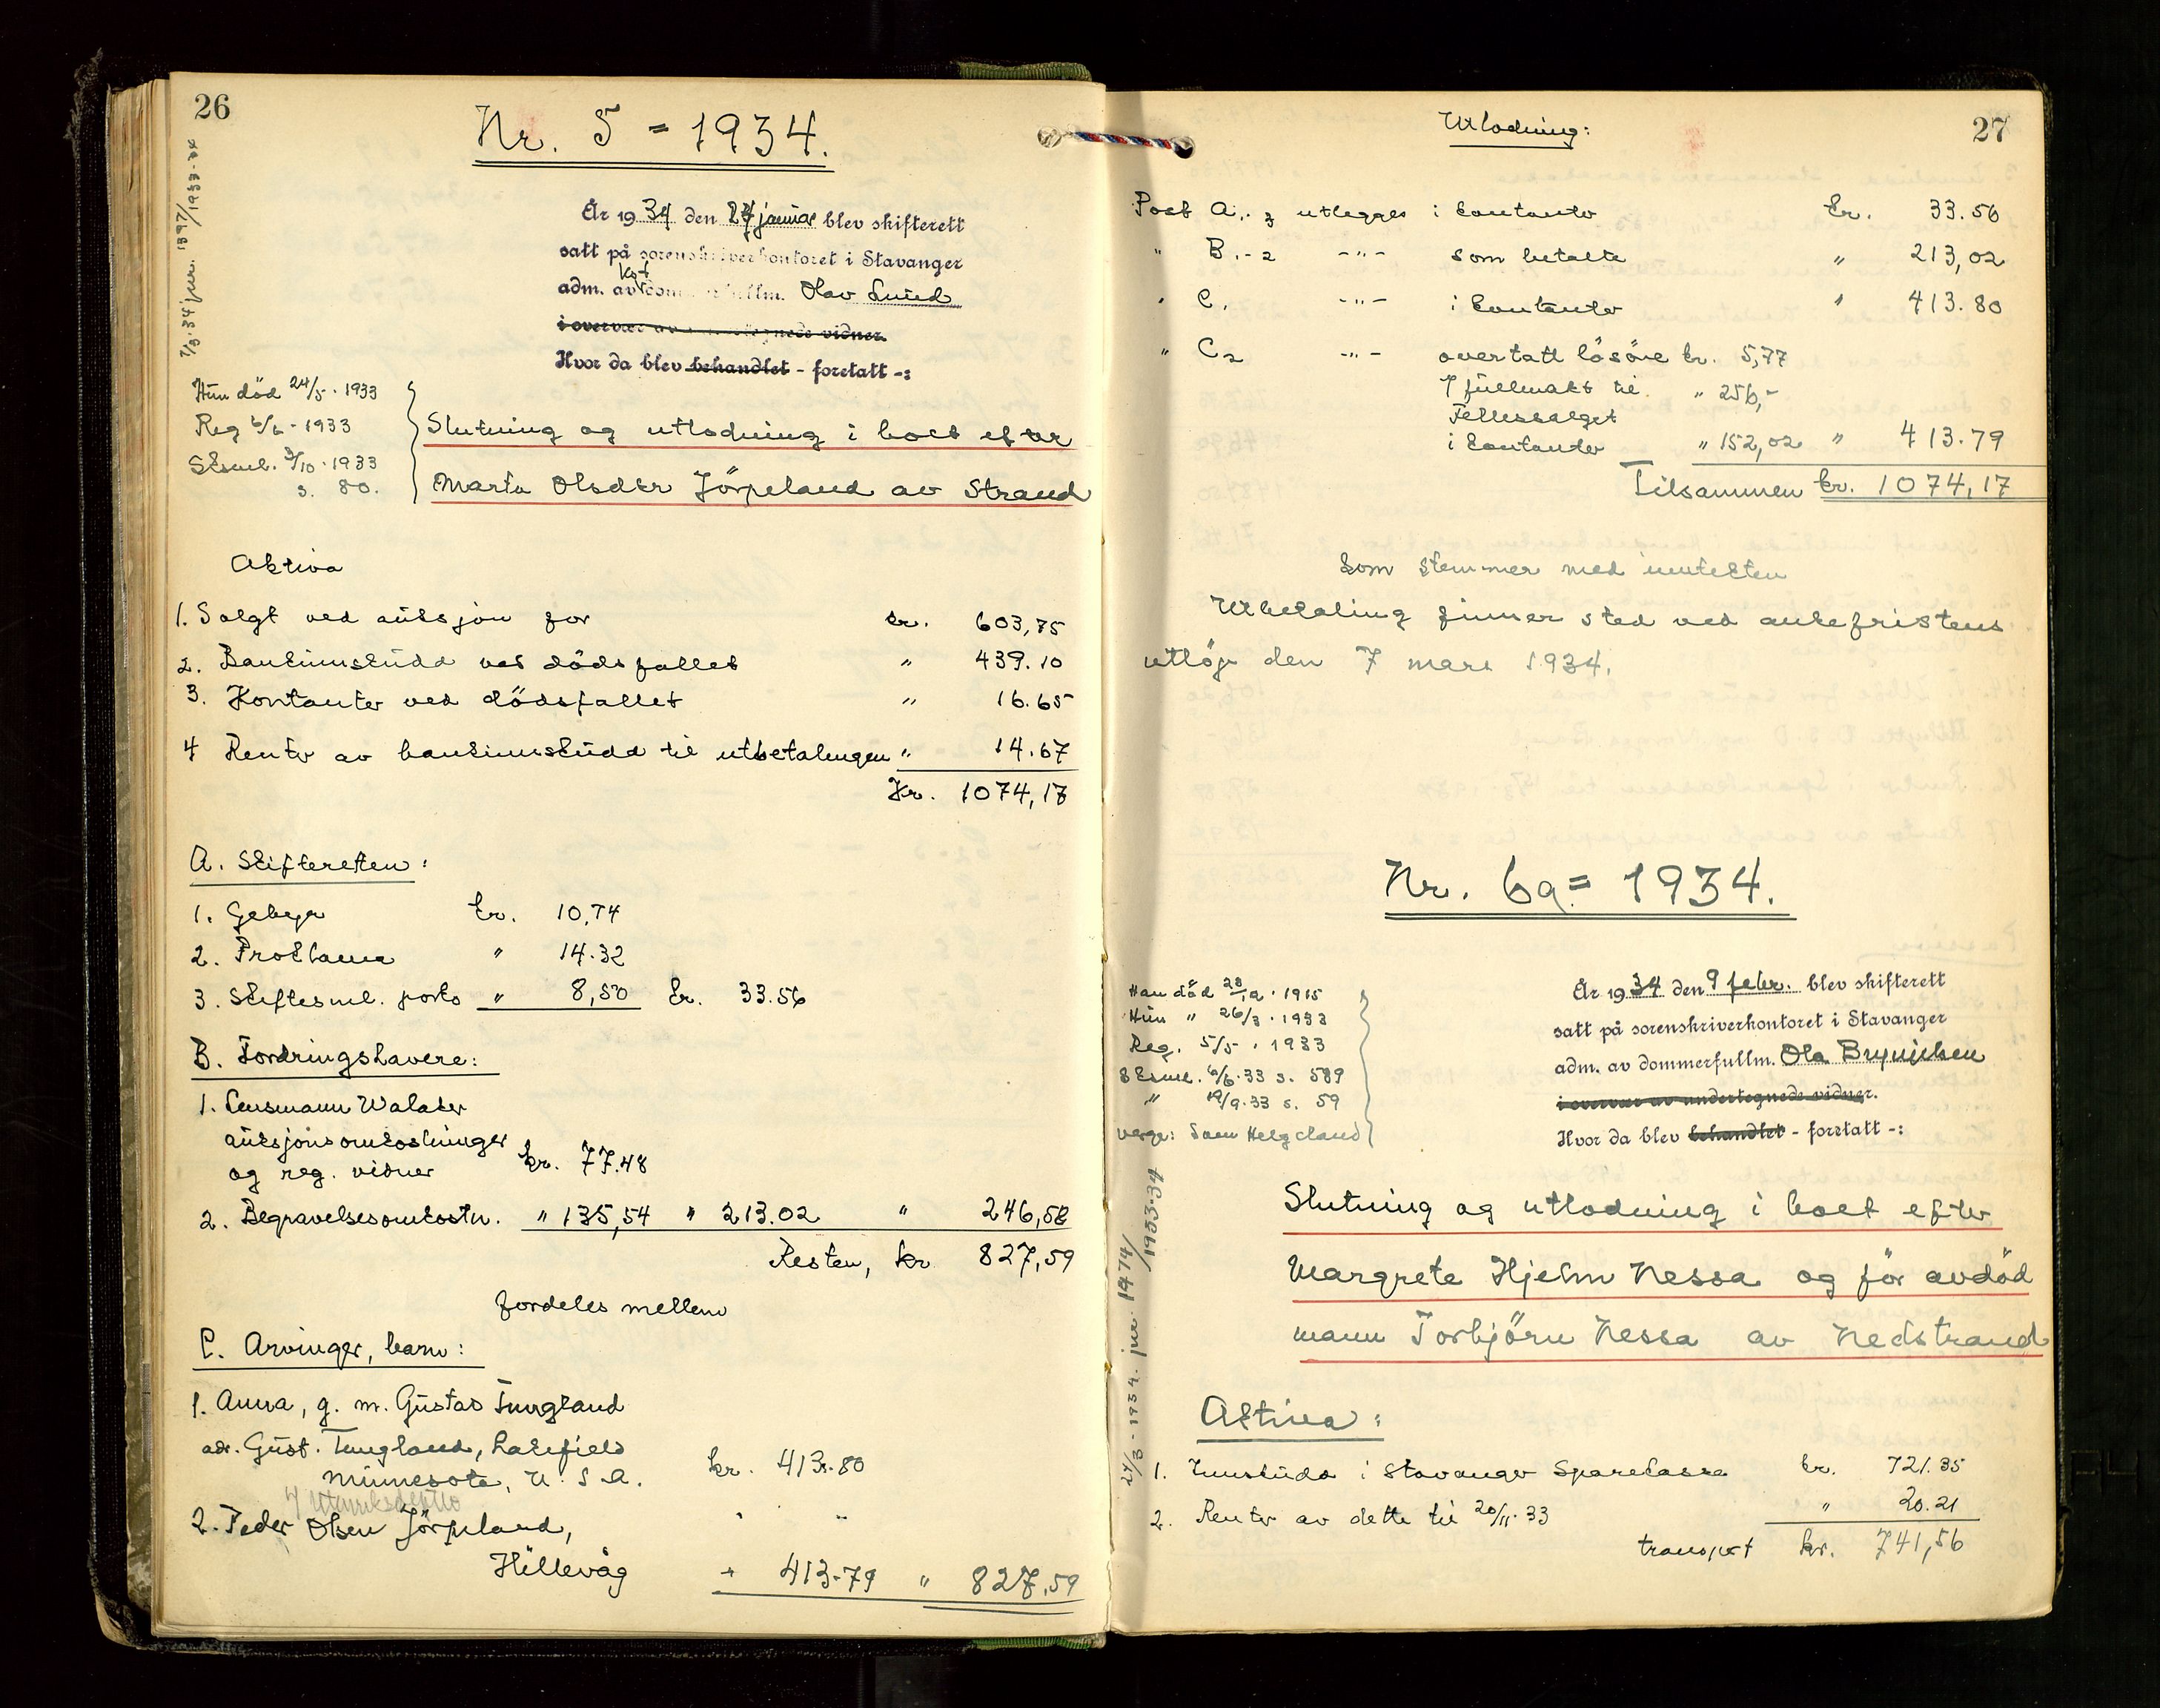 26
Nr. 5 = 1934.
7/3. 34 jnr. 1397/1933-34
År 1934 den 27 januar blev skifterett
satt på sorenskriverkontoret i Stavanger
adm. av kst. domm rfullm. Olav Lund
i overvær av undertegnede vidner.
Hvor da blev behandlet - foretatt -:
Hun död 24/5. 1933
Reg 6/6 - 1933
Sksml. 3/10. 1933
s. 80.
Slutning og utlodning i boet efter
Marta Olsdtr Jörpeland av Strand
Aktiva
1. Solgt ved auksjon for kr. 603,75
2. Bankinnskudd ved dödsfallet " 439.10
3. Kontanter ved dödsfallet " 16.65
4 Renter av bankinnskudd til utbetalingen " 14.67
Kr. 1074,17
A. Skifteretten:
1. Gebyr kr. 10,74
2. Proklama " 14.32
3. Skiftesml. porto " 8,50 kr. 33.56
B. Fordringshavere:
1. Lensmann Walaker
auksjonsomkostninger
og reg. vidner kr. 77.48
2. Begravelsesomkostn. " 135,54 " 213.02 " 246,58
Resten, kr 827,59
fordeles mellem
C. Arvinger, barn:
1. Anna, g. m. Gustav Tungland
adr. Gust. Tungland, Lakefield
Minnesota, U. S. A. kr. 413.80
2. Peder Olsen Jörpeland,
Hillevåg " 413.79 " 827,59
27
Utlodning:
Post A1-3 utlegges i kontanter kr. 33.56
" B1-2 -"- som betalte " 213,02
" C1 -"- i kontanter " 413.80
" C2 -"- overtatt lösöre kr. 5,77
fullmakt til " 256,-
Fellessalget
i kontanter " 152,02 " 413.79
Tilsammen kr. 1074,17
som stemmer med inntekten
Utbetaling finner sted ved ankefristens
utlöp den 7 mars 1934.
Nr. 6a = 1934.
Han död 28/12. 1915
Hun " 26/3. 1933
Reg. 5/5. 1933
Sksml. 6/6.33 s. 589
" 19/9.33 s. 59
verge: Søen Helgeland
24/3-1934. jnr. 1474/1933-34
År 1934 den 9 febr. blev skifterett
satt på sorenskriverkontoret i Stavanger
adm. av dommerfullm. Ola Brynjelsen
i overvær av undertegnede vidner.
Hvor da blev behandlet - foretatt -:
Slutning og utlodning i boet efter
Margrete Hjelm Nessa og för avdöd
mann Torbjörn Nessa av Nedstrand
Aktiva:
1. Innskudd i Stavanger Sparekasse kr. 721.35
2. Renter av dette til 20/11. 33 " 20.21
transport kr. 741,56